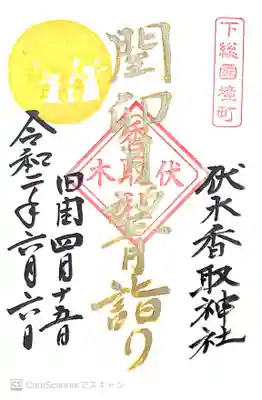 下総國境町
伏木香取神社
閏卯月望月詣り
伏木
香取
旧閏四月十五日
令和二年六月六日
CS CamScannerでスキャン